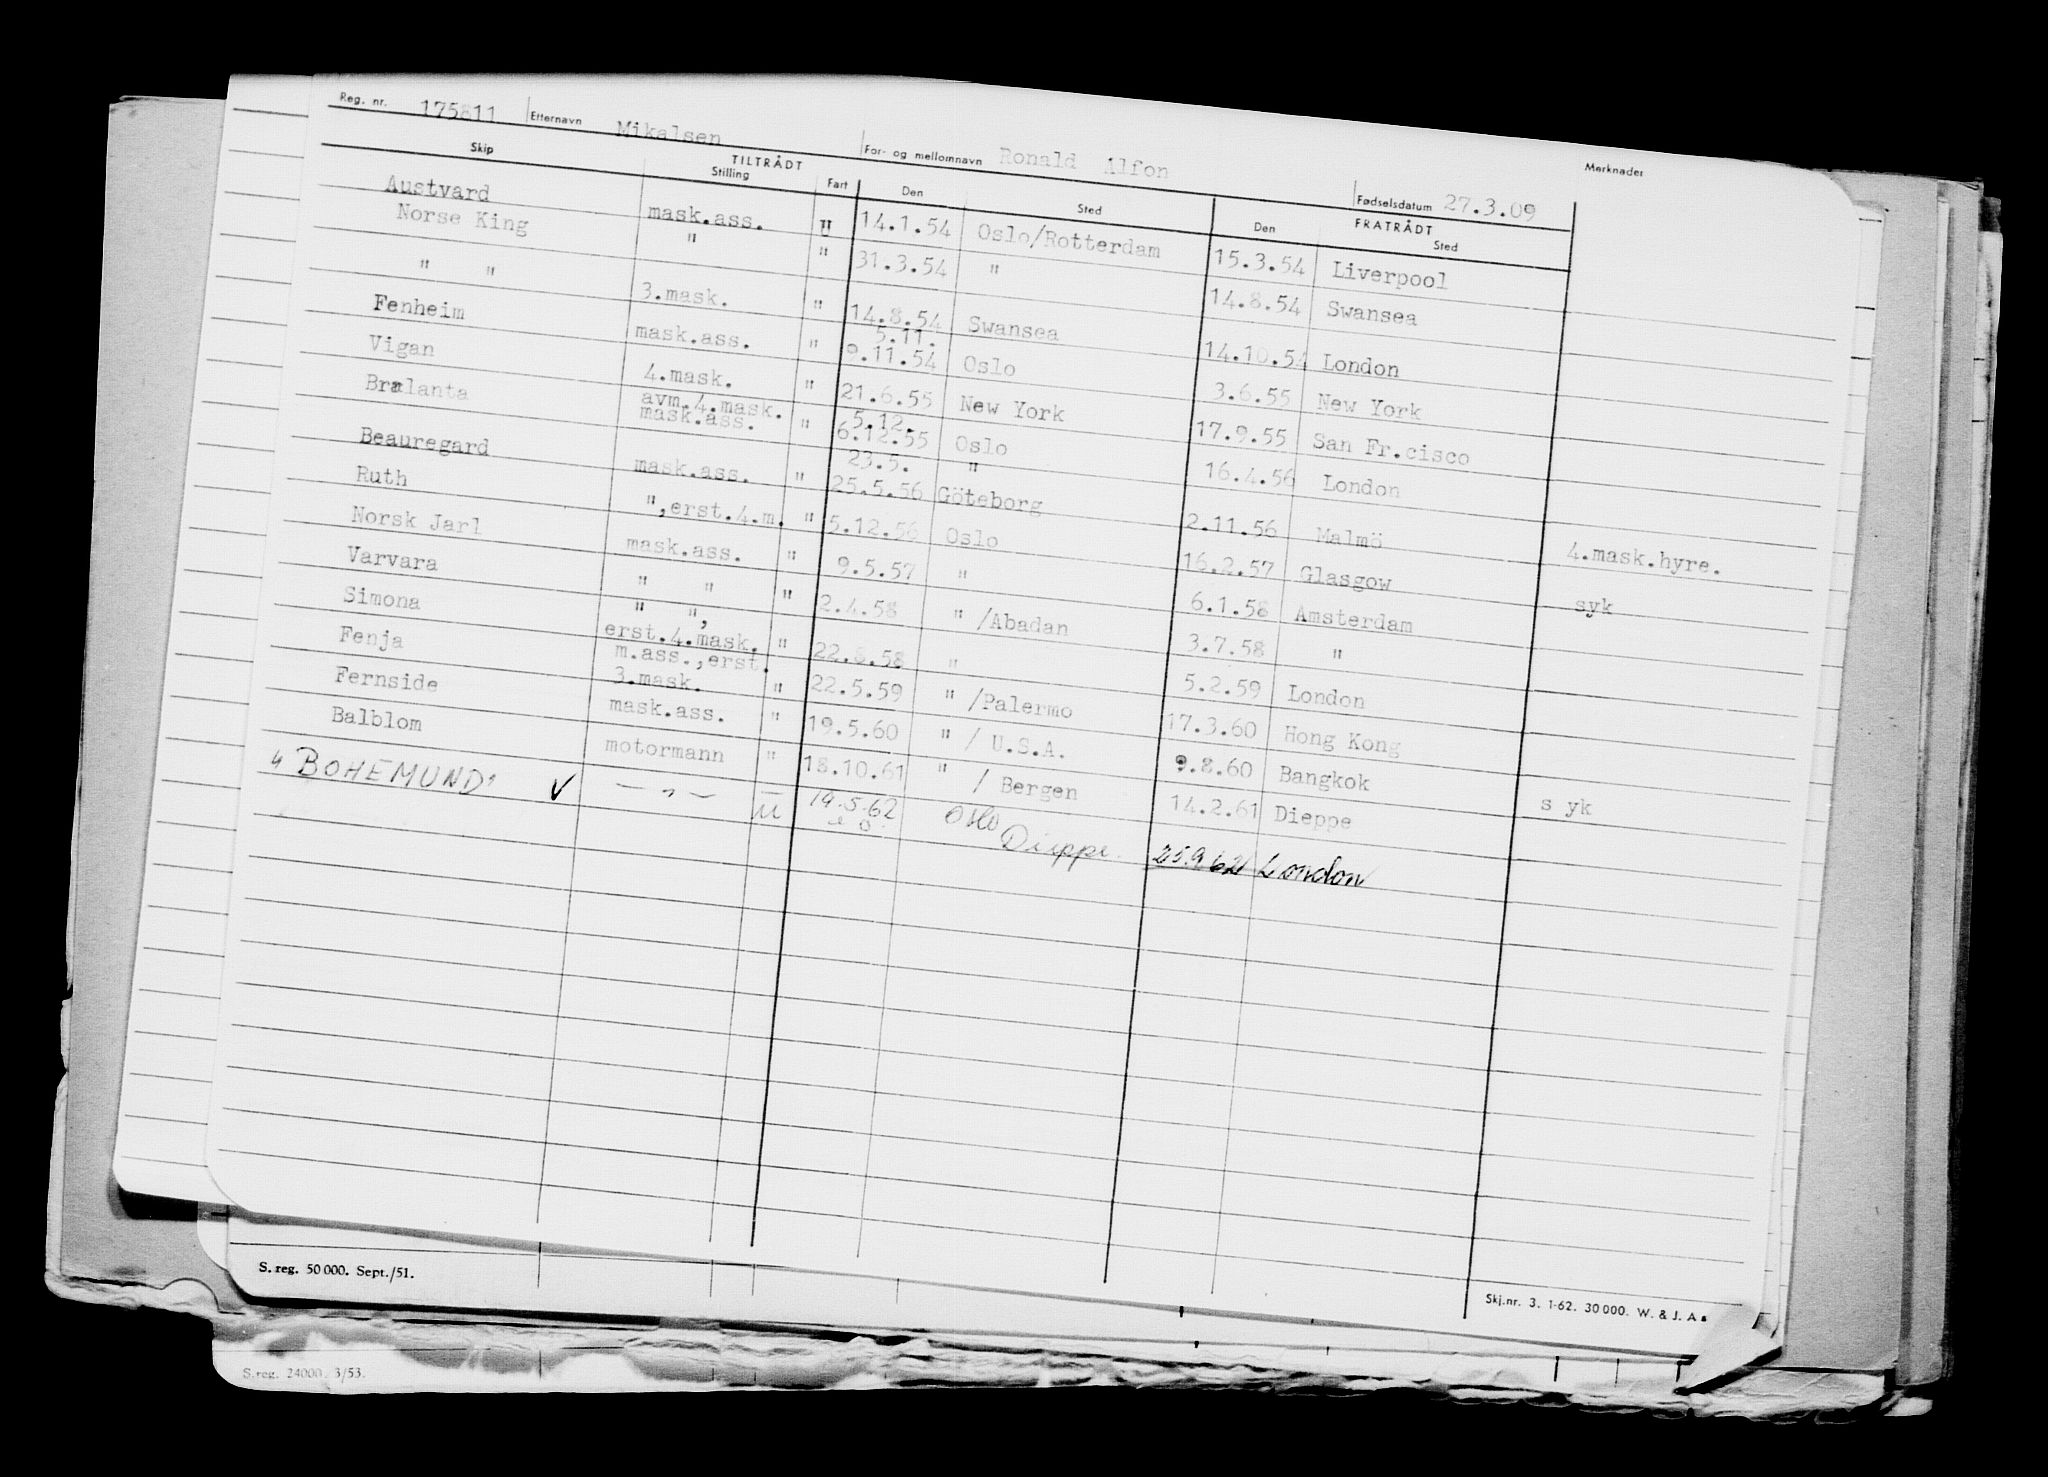 Reg. nr. 175811 Etternavn Mikalsen For- og mellomnavn Ronald Alfon Fødselsdatum 27.3.09 Merknader
Skip TILTRÅDT Stilling Fart Den Sted FRATRÅDT Den Sted
Austvard mask.ass. " 14.1.54 Oslo/Rotterdam 15.3.54 Liverpool
Norse King " " 31.3.54 " 14.8.54 Swansea
" " 3.mask. " 14.8.54 Swansea 14.10.54 London
Fenheim mask.ass. " 5.11. 9.11.54 Oslo 3.6.55 New York
Vigan 4.mask. " 21.6.55 New York 17.9.55 San Fr.cisco
Bralanta avm.4.mask. mask.ass. " 5.12. 6.12.55 Oslo 16.4.56 London
Beauregard mask.ass. " 23.5. 25.5.56 " Göteborg 2.11.56 Malmö 4.mask.hyre.
Ruth ",erst.4.m. " 5.12.56 Oslo 16.2.57 Glasgow syk
Norsk Jarl mask.ass. " 9.5.57 " 6.1.58 Amsterdam
Varvara " " " 2.4.58 " /Abadan 3.7.58 "
Simona " ", erst.4.mask. " 22.8.58 " 5.2.59 London
Fenja m.ass.,erst. 3.mask. " 22.5.59 " /Palermo 17.3.60 Hong Kong
Fernside mask.ass. " 19.5.60 " / U.S.A. 9.8.60 Bangkok s yk
Balblom motormann " 18.10.61 " / Bergen 14.2.61 Dieppe
"BOHEMUND" ✓ — " — u 19.5.62 Oslo Dieppe. 25.9.62 London
S. reg. 50 000. Sept./51.
Skj.nr. 3. 1-62. 30 000. W. & J. A
S. reg. 24000. 3/53.